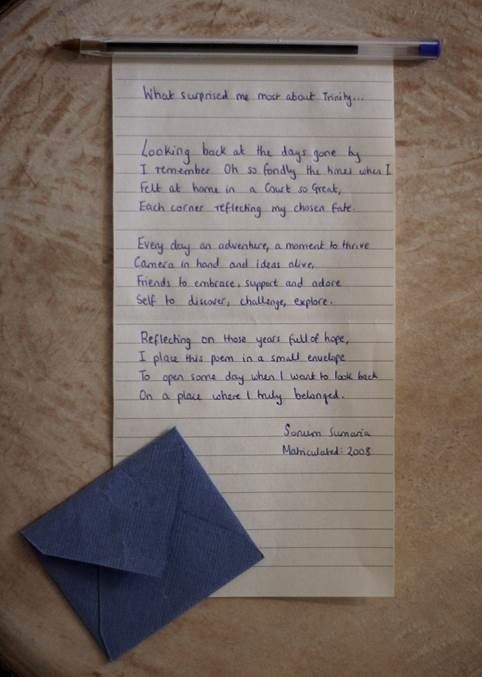 What surprised me most about Trinity...
Looking back at the days gone by
I remember Oh so fondly the times when I
Felt at home in a Court so Great,
Each corner reflecting my chosen fate.
Every day an adventure, a moment to thrive
Camera in hand and ideas alive,
Friends to embrace, support and adore
Self to discover, challenge, explore.
Reflecting on those years full of hope,
I place this poem in a small envelope
To open some day when I want to look back
On a place where I truly belonged.
Sonum Sumaria
Matriculated: 2008